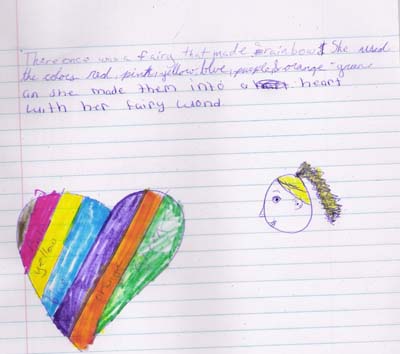 There once was a fairy that made rainbows She used
the colors red, pink, yellow blue, purple & orange - green
an she made them into a heart
with her fairy wond
yellow
orange